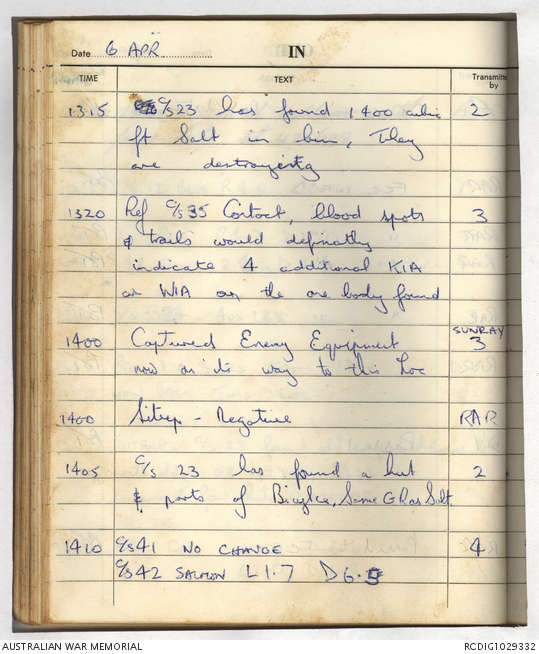 Date 6 APR. IN
TIME TEXT Transmitted by
1315 C/S 23 has found 1400 cubic 2
ft Salt in bin, They
are destroying
1320 Ref C/S 35 Contact, blood spots 3
& trails would definatly
indicate 4 additional KIA
or WIA on the one body found
SUNRAY
1400 Captured Enemy Equipment 3
now on its way to this Loc
1400 Sitrep - Negative RAR
1405 C/S 23 has found a hut 2
& parts of Bicycle, Same G R as Salt.
1410 C/S 41 NO CHANGE 4
C/S 42 SALMON L 1.7 D 6.5
AUSTRALIAN WAR MEMORIAL RCDIG1029332